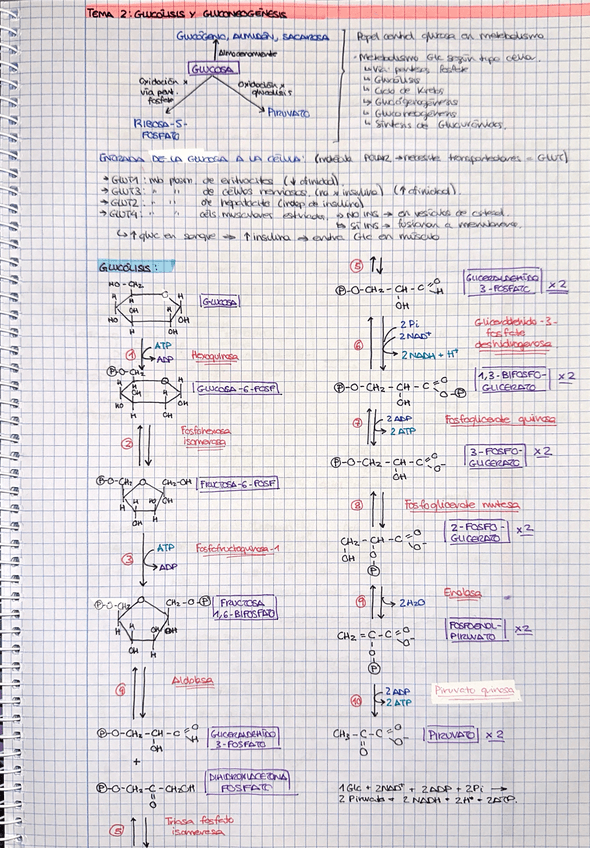 TEMA 2: GLUCÓLISIS Y GLUCONEOGÉNESIS
GLUCÓGENO, ALMIDÓN, SACAROSA
Almacenamiento
GLUCOSA
Oxidación x
vía pent.
fosfato
Oxidación x
glucólisis
RIBOSA-5-
FOSFATO
PIRUVATO
Papel central glucosa en metabolismo
Metabolismo Glc según tipo célula.
↳ Vía pentosas fosfato
↳ Glucólisis
↳ Ciclo de Krebs
↳ Glucogenogénesis
↳ Gluconeogénesis
↳ Síntesis de Glucurónidos.
ENTRADA DE LA GLUCOSA A LA CÉLULA: (molécula POLAR → necesita transportadores = GLUT)
→ GLUT1: mb plasm. de eritrocitos (↓ afinidad).
→ GLUT3: " " de células nerviosas. (no x insulina) (↑ afinidad)
→ GLUT2: " " de hepatocito (indep de insulina)
→ GLUT4: " " céls musculares estriadas. → NO INS → en vesículas de citosol.
↳ SI INS → fusionan a membrana.
↳ ↑ gluc en sangre → ↑ insulina → entra Glc en músculo
GLUCÓLISIS:
HO-CH₂
GLUCOSA
1
ATP
ADP
Hexoquinasa
GLUCOSA-6-FOSF
2
Fosfohexosa
isomerasa
P-O-CH₂
CH₂-OH
FRUCTOSA-6-FOSF
3
ATP
ADP
Fosfofructoquinasa-1
P-O-CH₂
CH₂-O-P
FRUCTOSA
1,6-BIFOSFATO
4
Aldolasa
P-O-CH₂-CH-C
O
H
OH
GLICERALDEHÍDO
3-FOSFATO
+
P-O-CH₂-C-CH₂OH
O
DIHIDROXIACETONA
FOSFATO
5
Triosa fosfato
isomerasa
5
P-O-CH₂-CH-C
O
H
OH
GLICERALDEHÍDO
3-FOSFATO
x2
6
2 Pi
2 NAD⁺
2 NADH + H⁺
Gliceraldehído-3-
fosfato
deshidrogenasa
P-O-CH₂-CH-C
O
O-P
OH
1,3-BIFOSFO-
GLICERATO
x2
7
2 ADP
2 ATP
Fosfoglicerato quinasa
P-O-CH₂-CH-C
O
O⁻
OH
3-FOSFO-
GLICERATO
x2
8
Fosfoglicerato mutasa
CH₂-CH-C
O
O⁻
OH
O
P
2-FOSFO-
GLICERATO
x2
9
2H₂O
Enolasa
CH₂=C-C
O
O⁻
O
P
FOSFOENOL-
PIRUVATO
x2
10
2 ADP
2 ATP
Piruvato quinasa
CH₃-C-C
O
O⁻
O
PIRUVATO
x2
1 Glc + 2NAD⁺ + 2ADP + 2Pi →
2 Piruvato + 2 NADH + 2H⁺ + 2ATP.